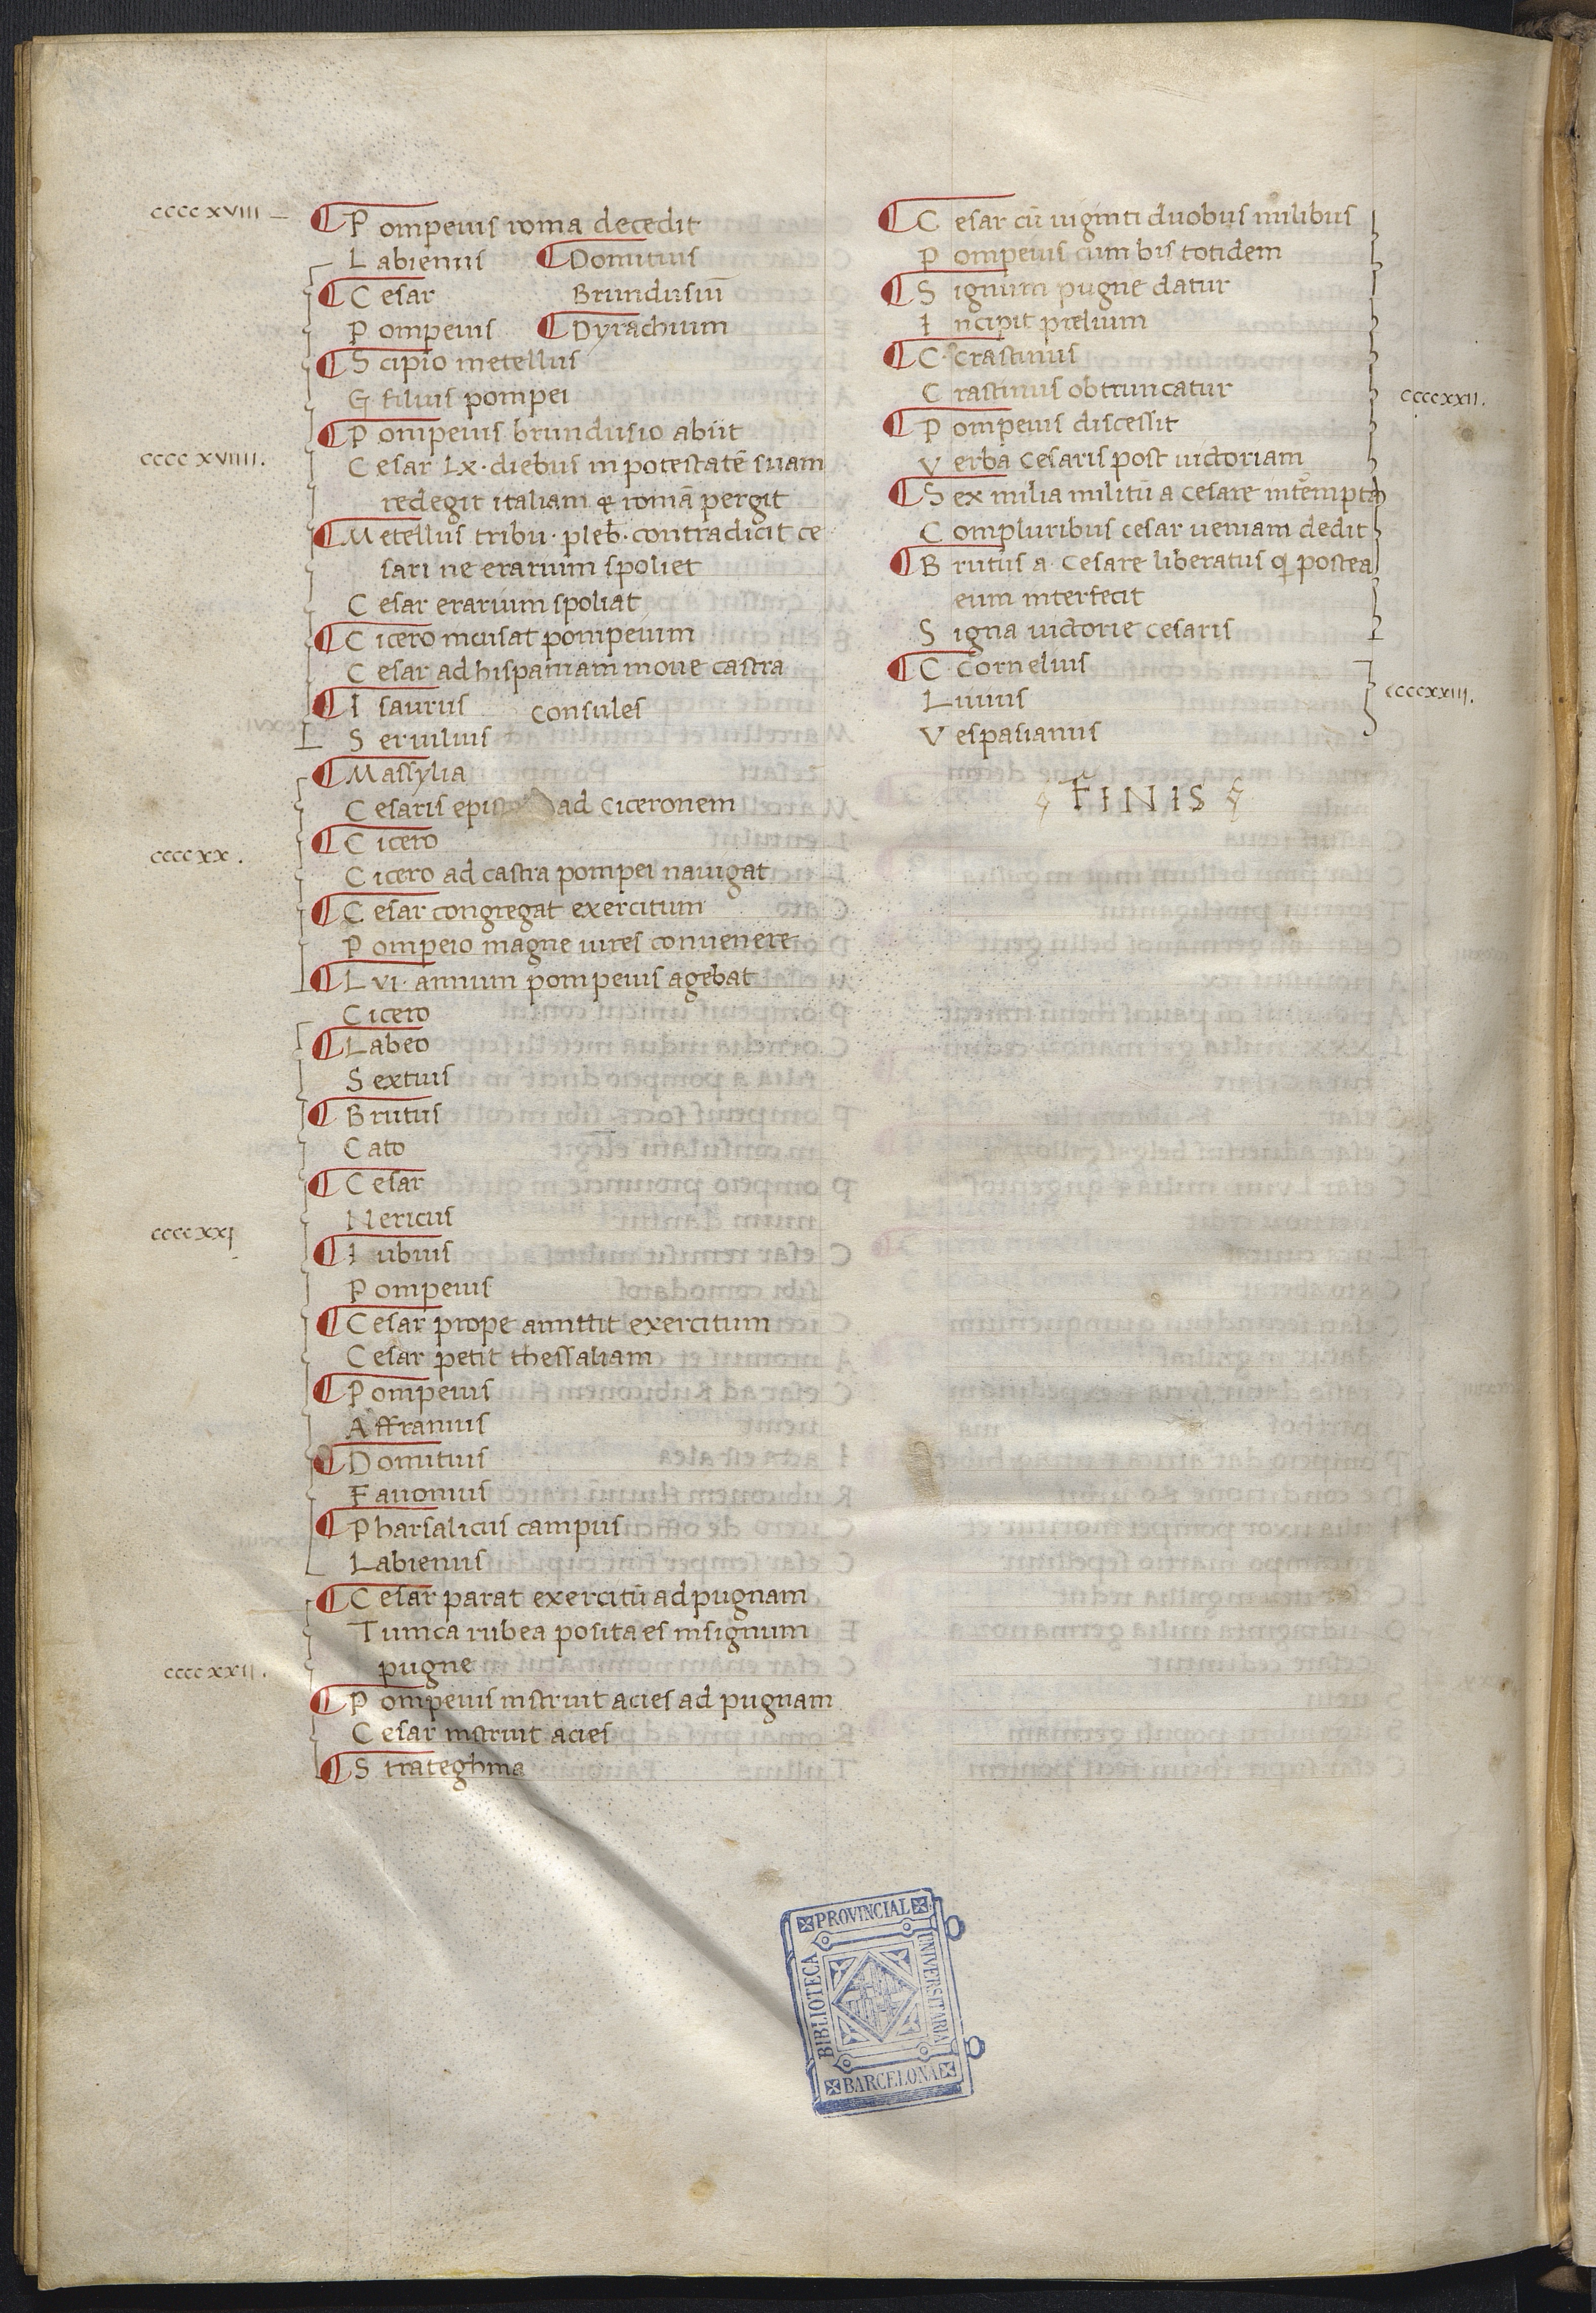 ccccxviii
¶ Pompeius roma decedit
Labienus ¶ Domitius
¶ Cesar Brundusiū
Pompeius ¶ Dyrachium
¶ Scipio metellus
G filius pompei
¶ Pompeius brundusio abiit
ccccxviiii.
Cesar lx· diebus in potestatē suam
redegit italiam & romā pergit
¶ Metellus tribu· pleb· contradicit ce
sari ne erarium spoliet
Cesar erarium spoliat
¶ Cicero incusat pompeium
Cesar ad hispaniam moue castra
¶ Isaurus consules
Seruilius
¶ Massylia
Cesaris epis ad Ciceronem
¶ Cicero
ccccxx.
Cicero ad castra pompei nauigat
¶ Cesar congregat exercitum
Pompeio magne uires conuenere
¶ Lvi· annum pompeius agebat
Cicero
¶ Labeo
Sextius
¶ Brutus
Cato
¶ Cesar
Nericus
ccccxxi
¶ Iubius
Pompeius
¶ Cesar prope amittit exercitum
Cesar petit thessaliam
¶ Pompeius
Affranius
¶ Domitius
Fauonius
¶ Pharsalicus campus
Labienus
¶ Cesar parat exercitū ad pugnam
Tunica rubea posita es insignum
pugne
ccccxxii.
¶ Pompeius instruit acies ad pugnam
Cesar instruit acies
¶ Strateghma
¶ Cesar cū uiginti duobus milibus
Pompeius cum bis totidem
¶ Signum pugne datur
Incipit prelium
¶ C· crastinus
Crastinus obtruncatur
ccccxxii.
¶ Pompeius discessit
Verba Cesaris post uictoriam
¶ Sex milia militū a Cesare intēmpta
Compluribus cesar ueniam dedit
¶ Brutus a Cesare liberatus q postea
eum interfecit
Signa uictorie cesaris
¶ C· Cornelius
ccccxxiii.
Liuius
Vespasianus
FINIS
PROVINCIAL
UNIVERSITARIA
BIBLIOTECA
BARCELONA